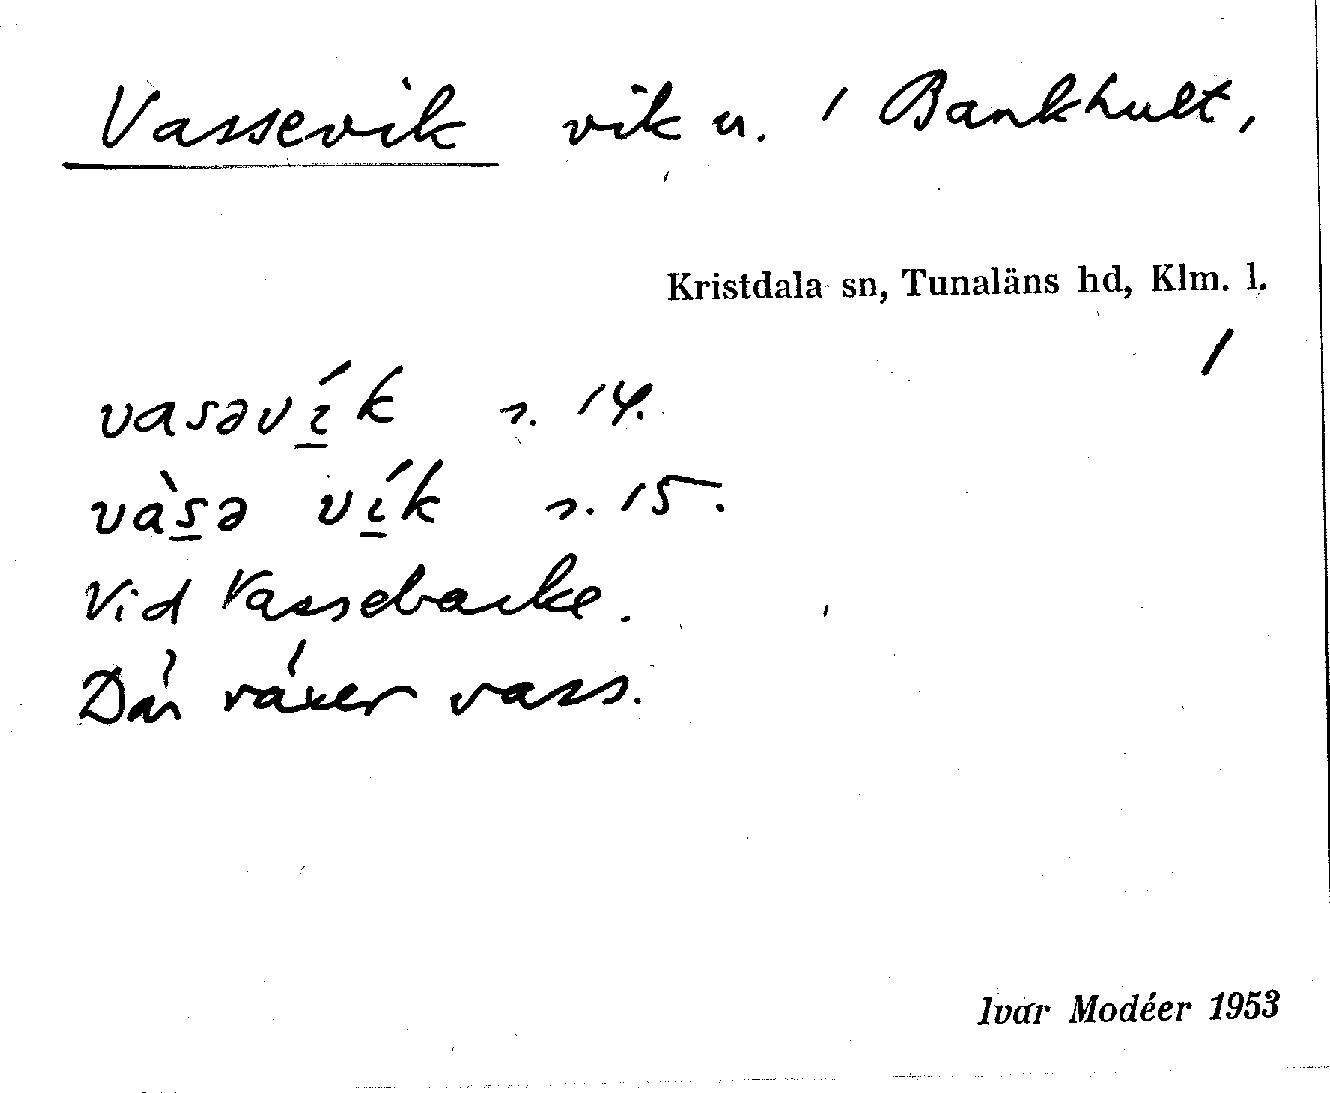 Vassevik vik u. 1 Bankhult,
Kristdala sn, Tunaläns hd, Klm. l.
1
vasəví̲k s. 14.
vàs̲ə ví̲k s. 15.
Vid Vassebacke.
Där växer vass.
Ivar Modéer 1953